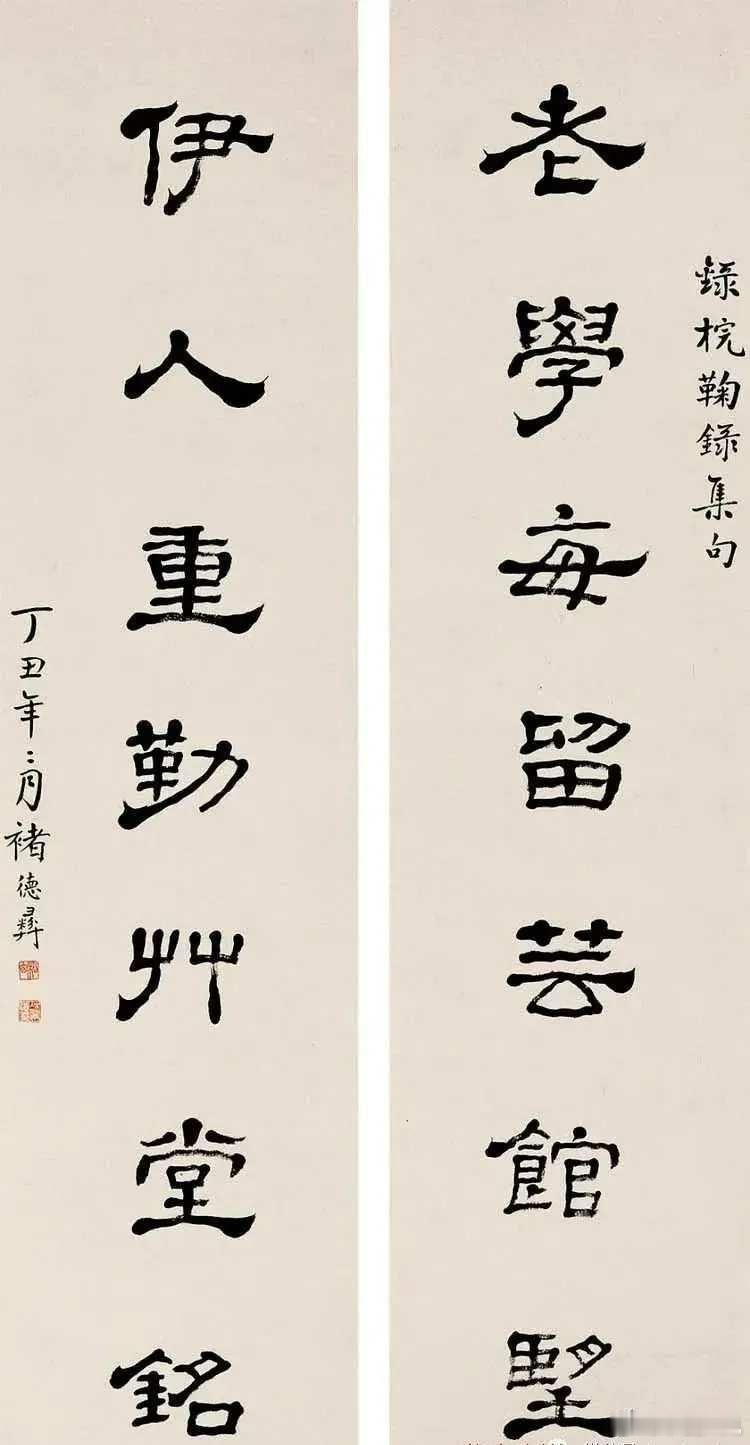 錄梡鞠錄集句
老學每留芸館
伊人重勤艸堂銘
丁丑年二月褚德彝